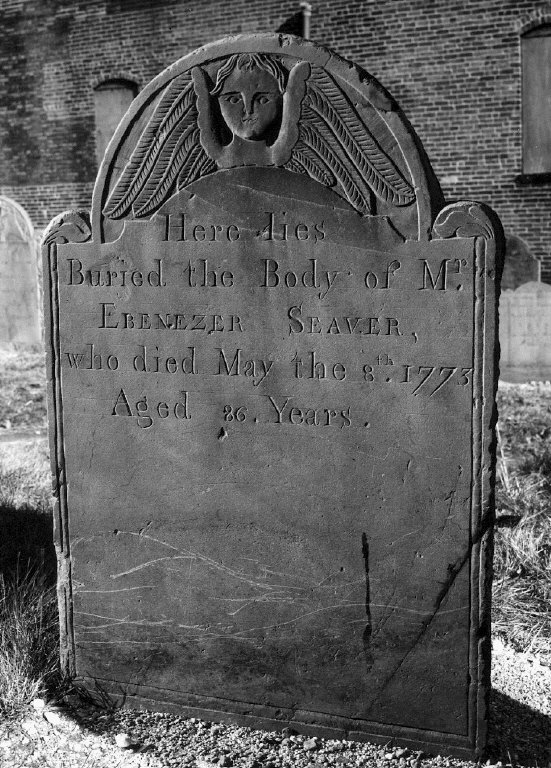 Here lies
Buried the Body of Mr.
EBENEZER SEAVER,
who died May the 8th. 1773
Aged 86. Years.